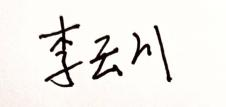 李云川